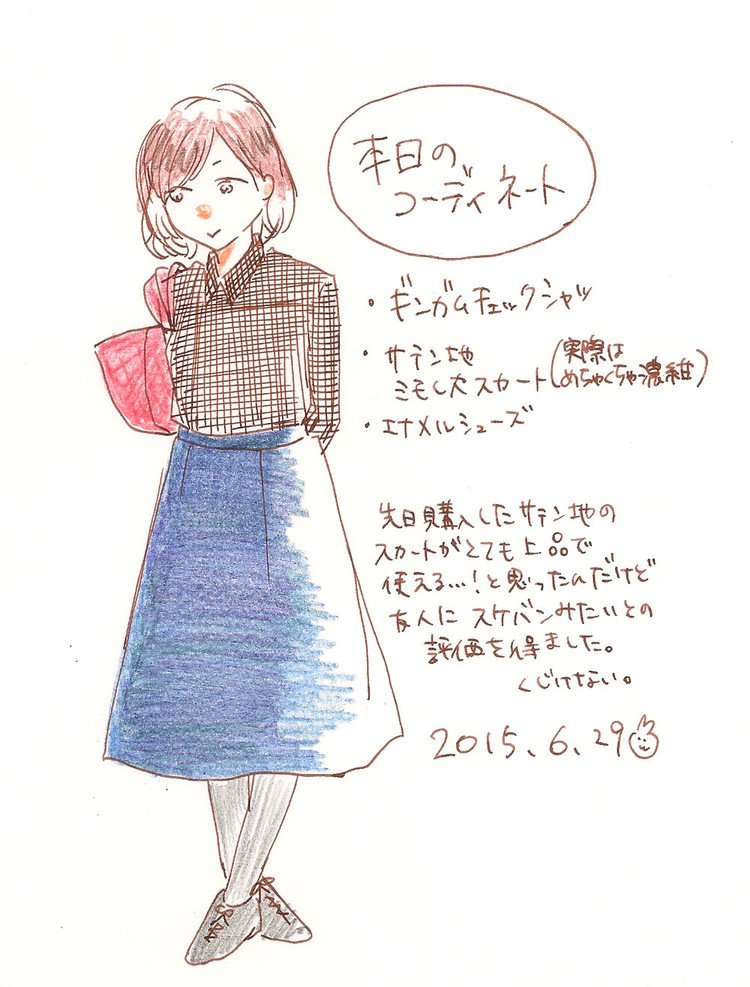 本日の
コーディネート
・ギンガムチェックシャツ
・サテン地
ミモレ丈スカート(実際は
めちゃくちゃ濃紺)
・エナメルシューズ
先日購入したサテン地の
スカートがとても上品で
使える…!と思ったんだけど
友人にスケバンみたいとの
評価を得ました。
くじけない。
2015.6.29